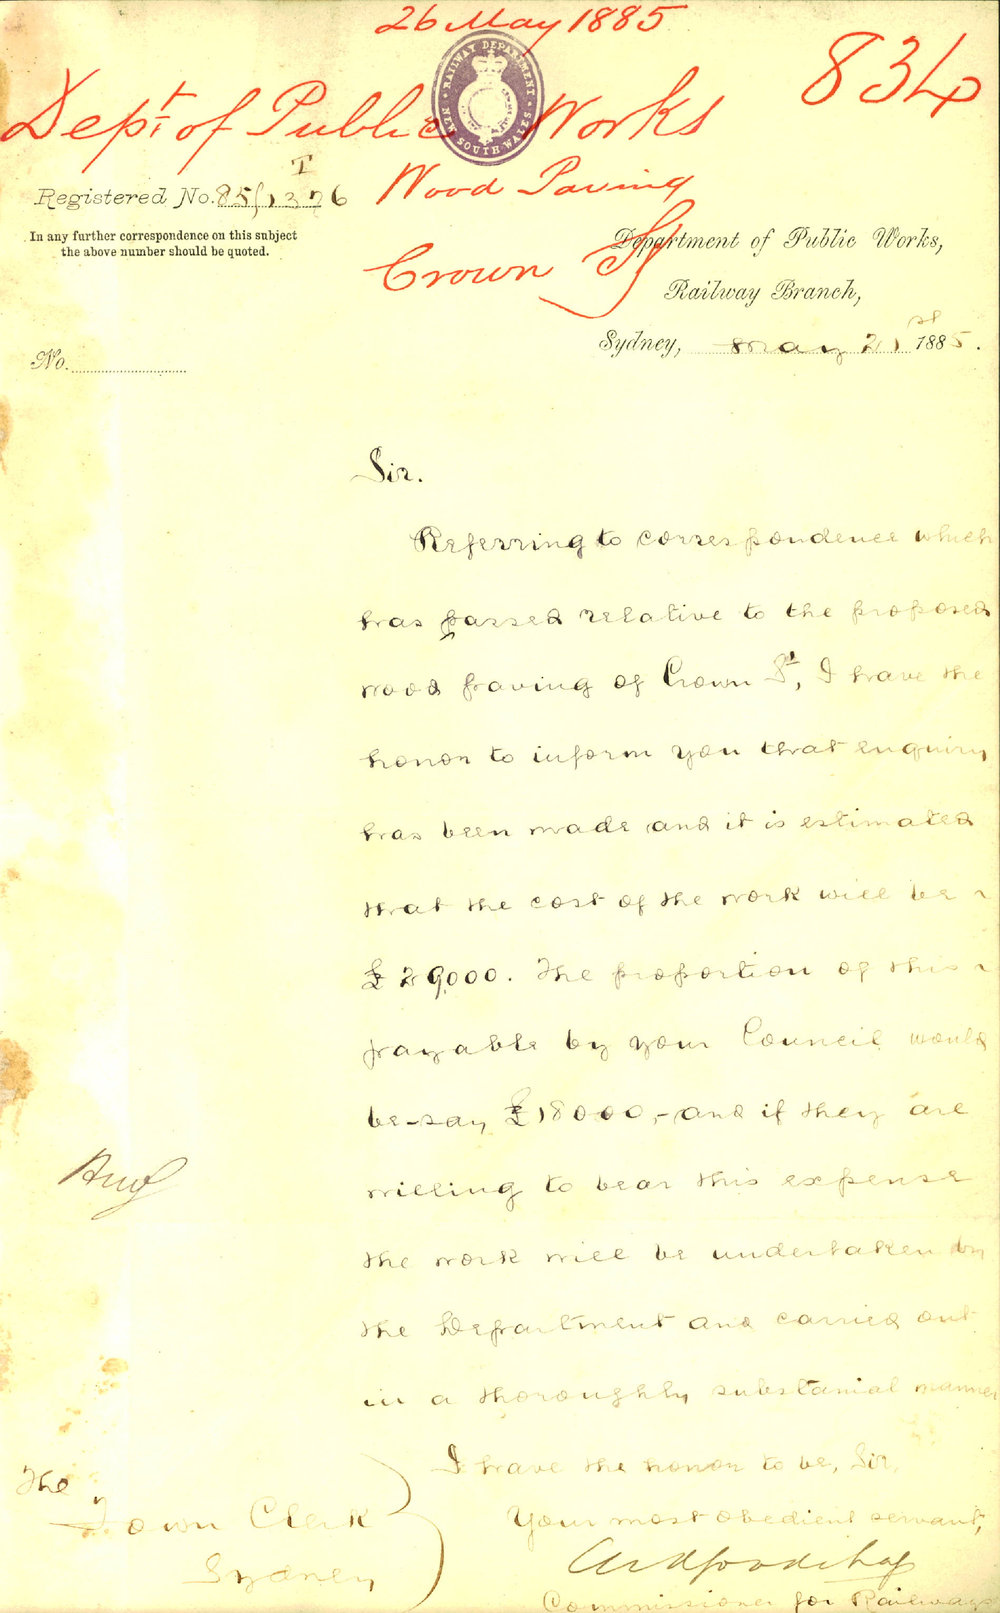 26 May 1885
834
Dept. of Public Works
Wood Paving
Crown St
RAILWAY DEPARTMENT
NEW SOUTH WALES
Registered No. 85/1376
T
In any further correspondence on this subject
the above number should be quoted.
Department of Public Works,
Railway Branch,
Sydney, May 21st 1885.
No.
Sir.
Referring to correspondence which
has passed relative to the proposed
wood paving of Crown St, I have the
honor to inform you that enquiry
has been made and it is estimated
that the cost of the work will be
£29000. The proportion of this
payable by your Council would
be-say £18000,-and if they are
willing to bear this expense
the work will be undertaken by
the Department and carried out
in a thoroughly substanial manner
I have the honor to be, Sir,
Your most obedient servant,
Commissioner for Railways
The
Town Clerk
Sydney